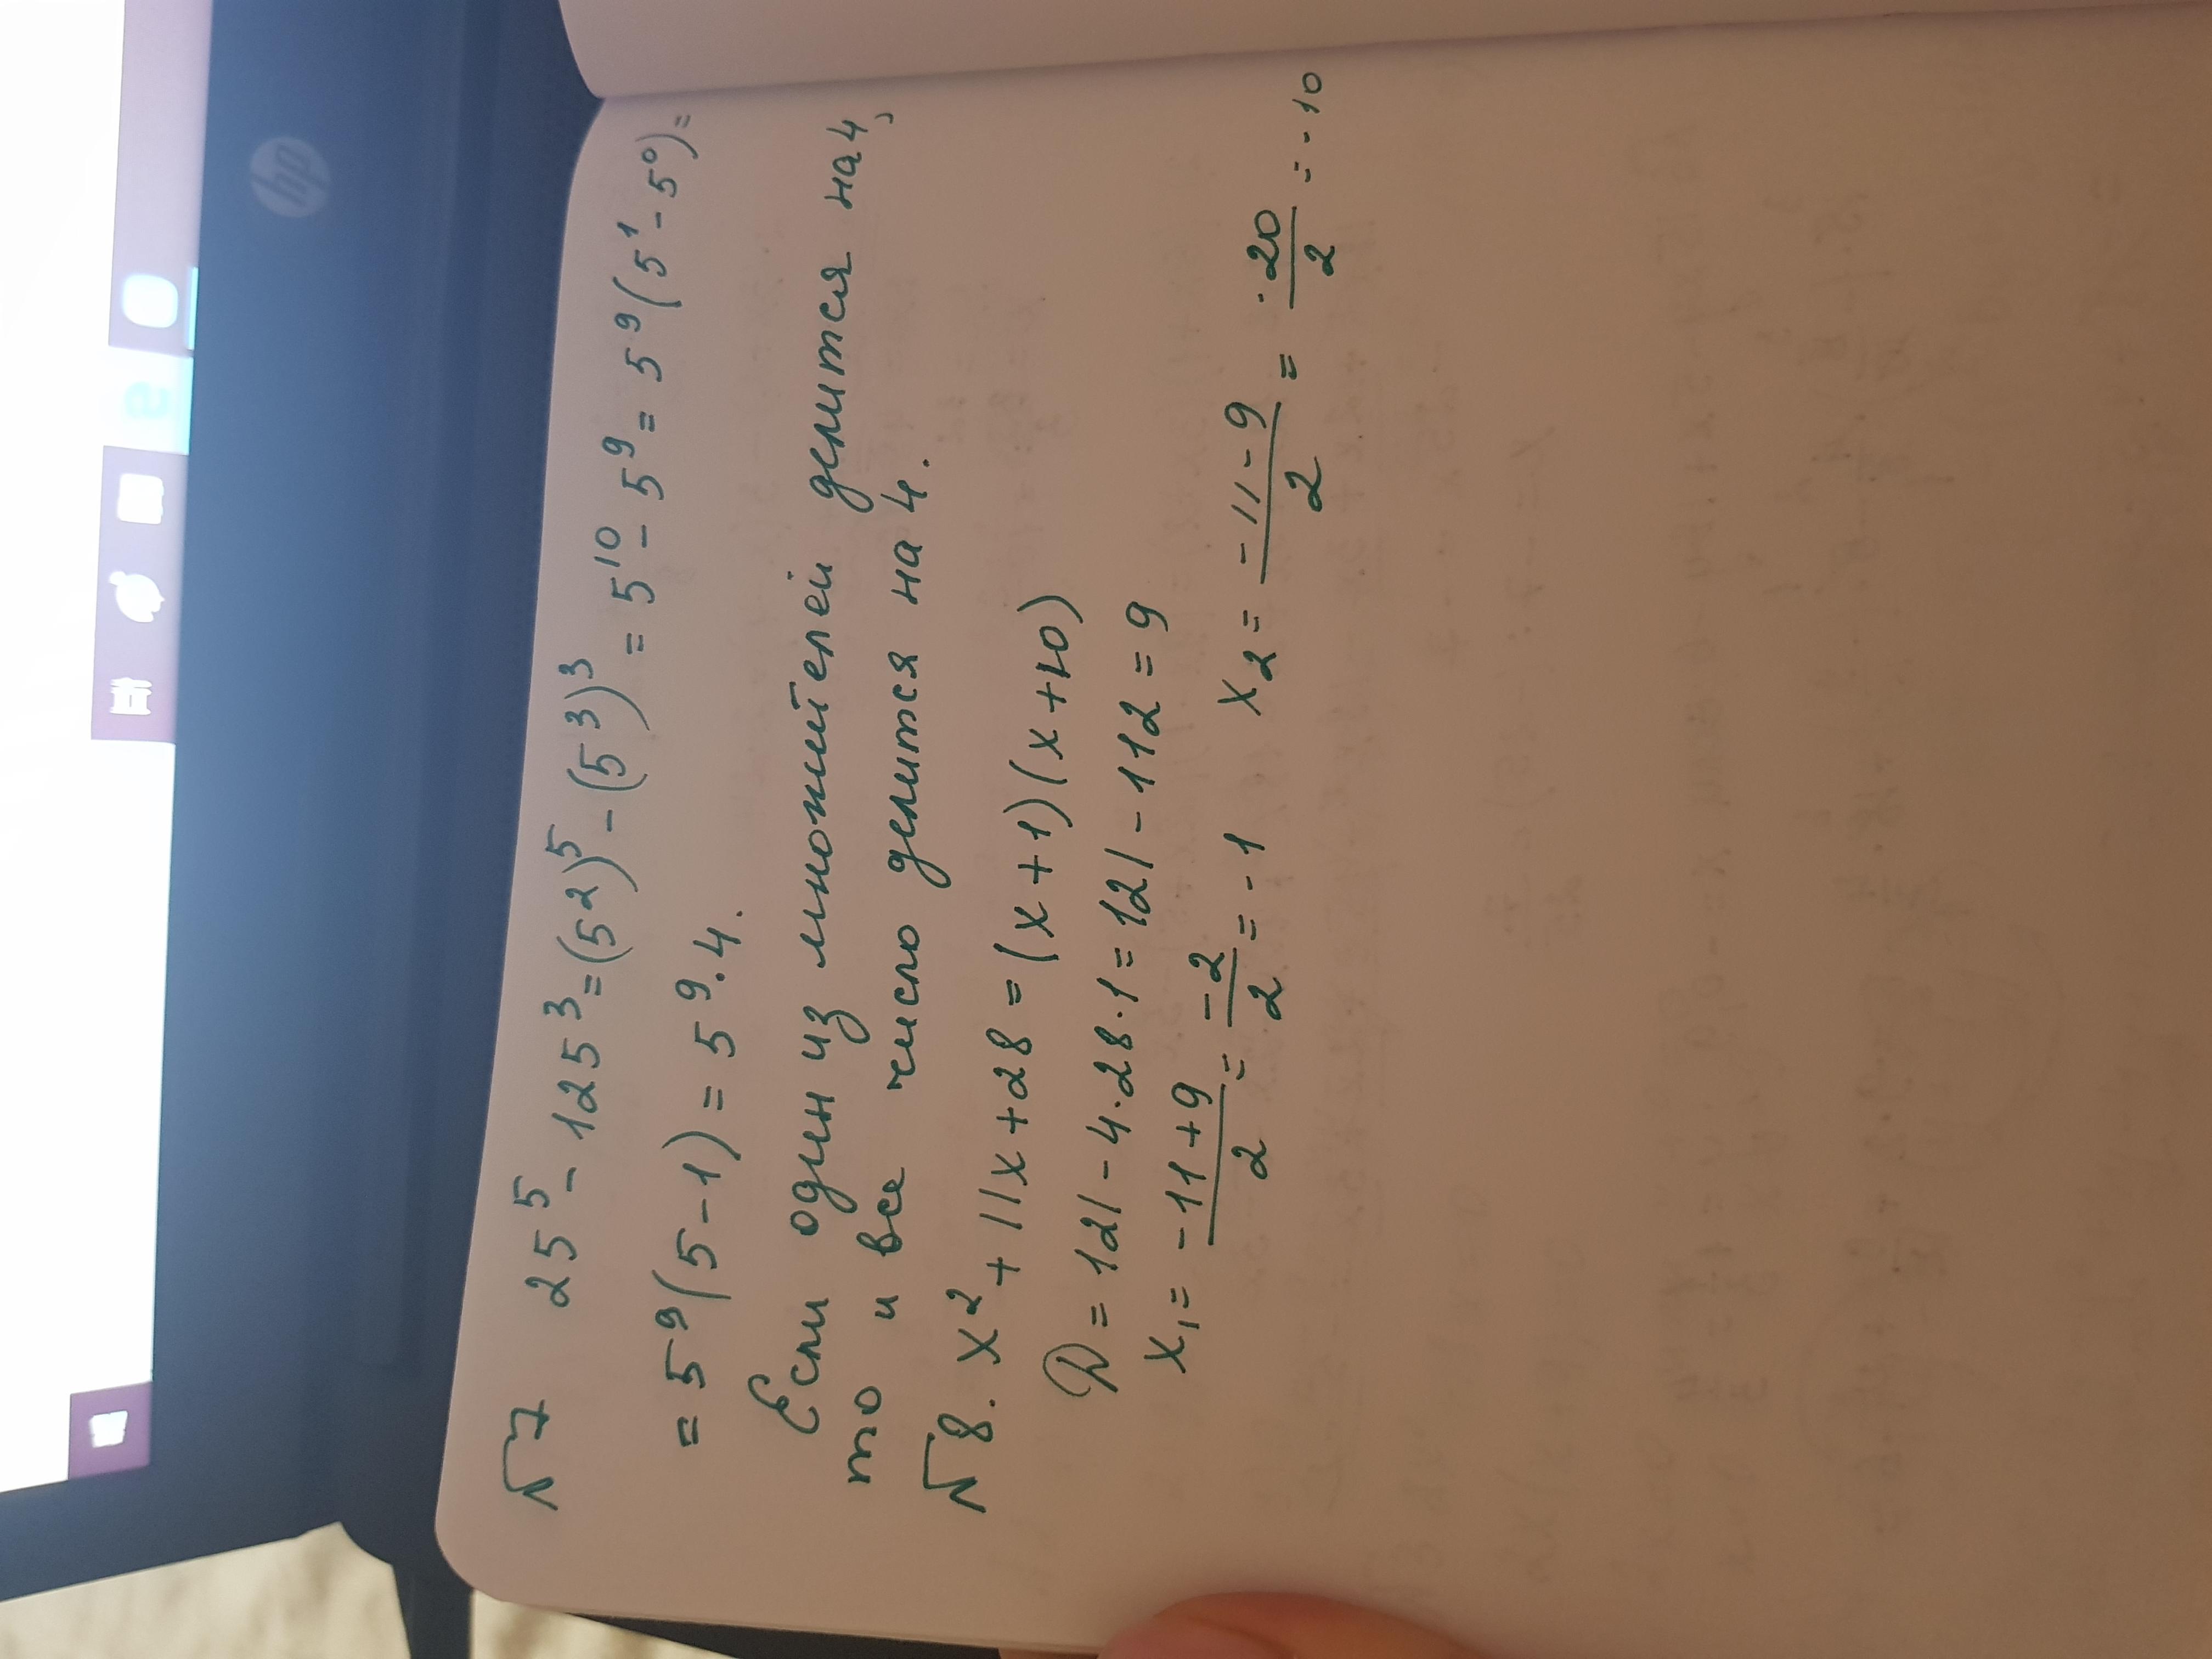 √7 25⁵ - 125³ = (5²)⁵ - (5³)³ = 5¹⁰ - 5⁹ = 5⁹(5¹ - 5⁰) =
= 5⁹(5 - 1) = 5⁹ · 4.
Если один из множителей делится на 4,
то и все число делится на 4.
√8. x² + 11x + 28 = (x + 1)(x + 10)
D = 121 - 4 · 28 · 1 = 121 - 112 = 9
x₁ = (-11 + 9)/2 = -2/2 = -1 x₂ = (-11 - 9)/2 = -20/2 = -10
hp